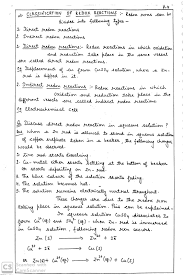 CLASSIFICATION OF REDOX REACTIONS :- Redox reactions can be
divided into following types -
1. Direct redox reactions
2. Indirect redox reactions
Direct redox reactions: Redox reactions in which oxidation
and reduction take place in the same vessel
are called direct redox reactions.
Eg Displacement of Cu from CuSO4 solution, when a Zn-
rod is dipped in it.
Indirect redox reactions :- Redox reactions in which
oxidation and reduction take place in the
different vessels are called indirect redox reactions
Eg Electrochemical Cell
Discuss direct redox reaction in aqueous solution ?
When a Zn rod is allowed to stand in aqueous solution
of copper sulphate taken in a beaker, the following changes
would be observed.
Zinc rod starts dissolving
Cu-metal either starts settling at the bottom of beaker
or starts depositing on Zn-rod.
The blue colour of the solution starts fading
The solution becomes hot.
The solution remains electrically neutral throughout
These changes are due to the redox reaction
taking place in aqueous solution. This can be explained
In aqueous solution CuSO4 dissociates to
form Cu2+ (aq) and SO4 2- (aq). When Zn rod is immersed
in solution, following redox reaction occurs.
Zn (s) → Zn2+
Cu2+ → Cu (s)
Zn (s) + Cu2+ → Zn2+ + Cu (s)
CS